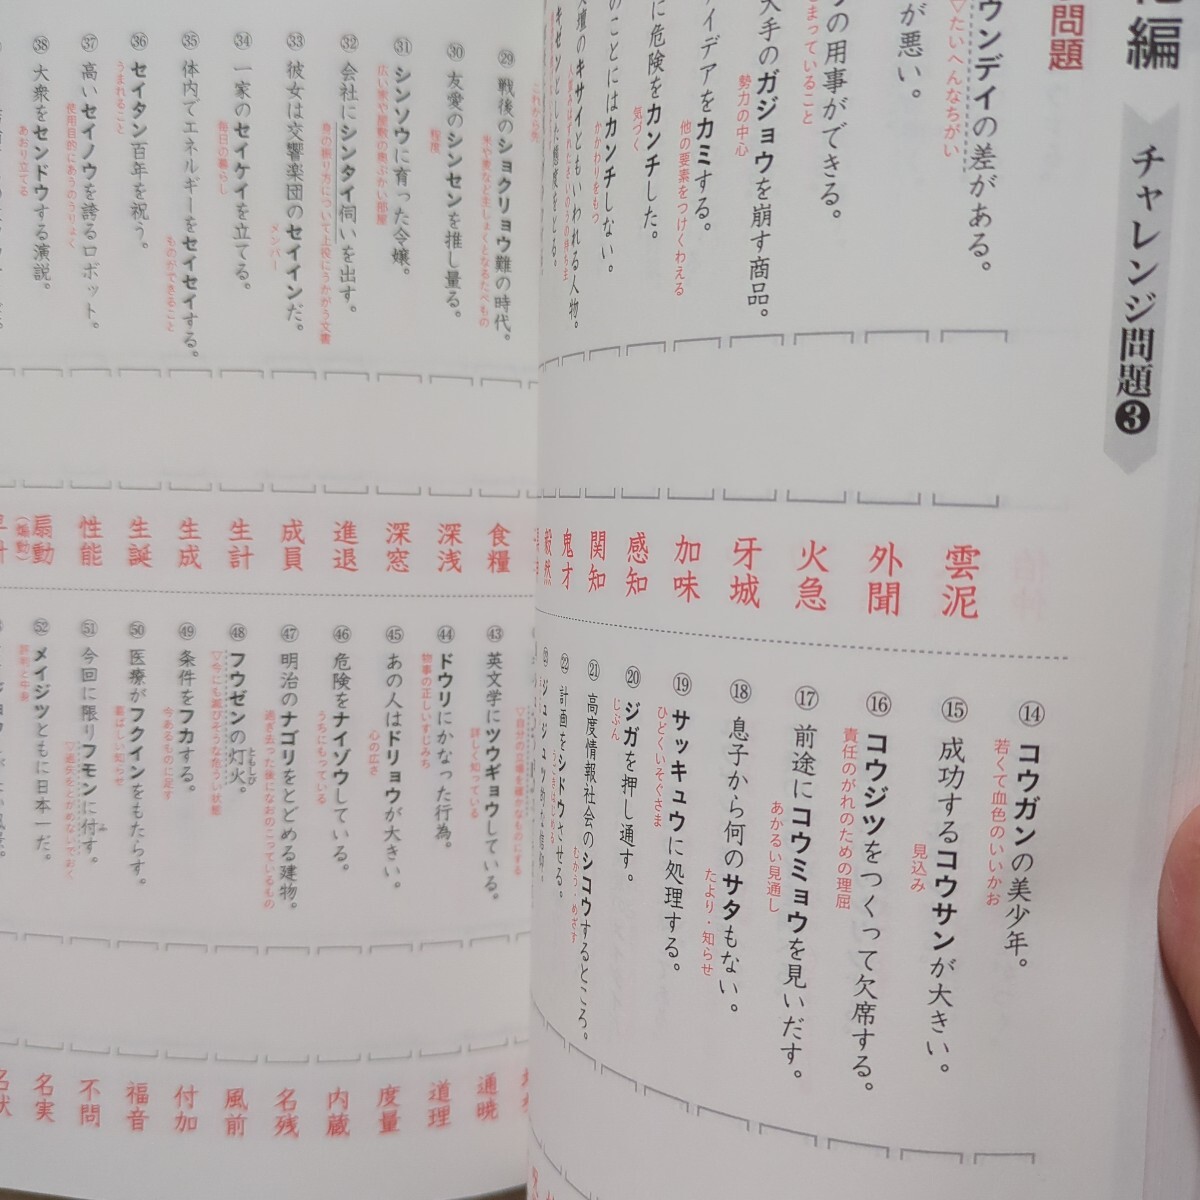 編
チャレンジ問題❸
問題
ウンデイの差がある。
▽たいへんなちがい
が悪い。
の用事ができる。
まっていること
大手のガジョウを崩す商品。
勢力の中心
イデアをカミする。
他の要素をつけくわえる
に危険をカンチした。
気づく
のことにはカンチしない。
かかわりをもつ
壇のキサイともいわれる人物。
雲泥
外聞
火急
牙城
加味
感知
関知
鬼才
毅然
⑭ コウガンの美少年。
若くて血色のいいかお
⑮ 成功するコウサンが大きい。
見込み
⑯ コウジツをつくって欠席する。
責任のがれのための理屈
⑰ 前途にコウミョウを見いだす。
あかるい見通し
⑱ 息子から何のサタもない。
たより・知らせ
⑲ サッキュウに処理する。
ひどくいそぐさま
⑳ ジガを押し通す。
じぶん
㉑ 高度情報社会のシコウするところ。
むかう・めざす
㉒ 計画をシドウさせる。
㉙ 戦後のショクリョウ難の時代。
米や麦など主しょくとなるたべもの
㉚ 友愛のシンセンを推し量る。
程度
㉛ シンソウに育った令嬢。
広い家や屋敷の奥ぶかい部屋
㉜ 会社にシンタイ伺いを出す。
身の振り方について上役にうかがう文書
㉝ 彼女は交響楽団のセイインだ。
メンバー
㉞ 一家のセイケイを立てる。
毎日の暮らし
㉟ 体内でエネルギーをセイセイする。
ものができること
㊱ セイタン百年を祝う。
うまれること
㊲ 高いセイノウを誇るロボット。
使用目的にあうのうりょく
㊳ 大衆をセンドウする演説。
あおり立てる
食糧
深浅
深窓
進退
成員
生計
生成
生誕
性能
扇動
（煽動）
㊸ 英文学にツウギョウしている。
詳しく知っている
㊹ ドウリにかなった行為。
物事の正しいすじみち
㊺ あの人はドリョウが大きい。
心の広さ
㊻ 危険をナイゾウしている。
うちにもっている
㊼ 明治のナゴリをとどめる建物。
過ぎ去った後になおのこっているもの
㊽ フウゼンの灯火。
ともしび
▽今にも滅びそうな危うい状態
㊾ 条件をフカする。
今あるものに足す
㊿ 医療がフクインをもたらす。
喜ばしい知らせ
51 今回に限りフモンに付す。
▽過失をとがめないでおく
52 メイジツともに日本一だ。
評判と中身
通暁
道理
度量
内蔵
名残
風前
付加
福音
不問
名実